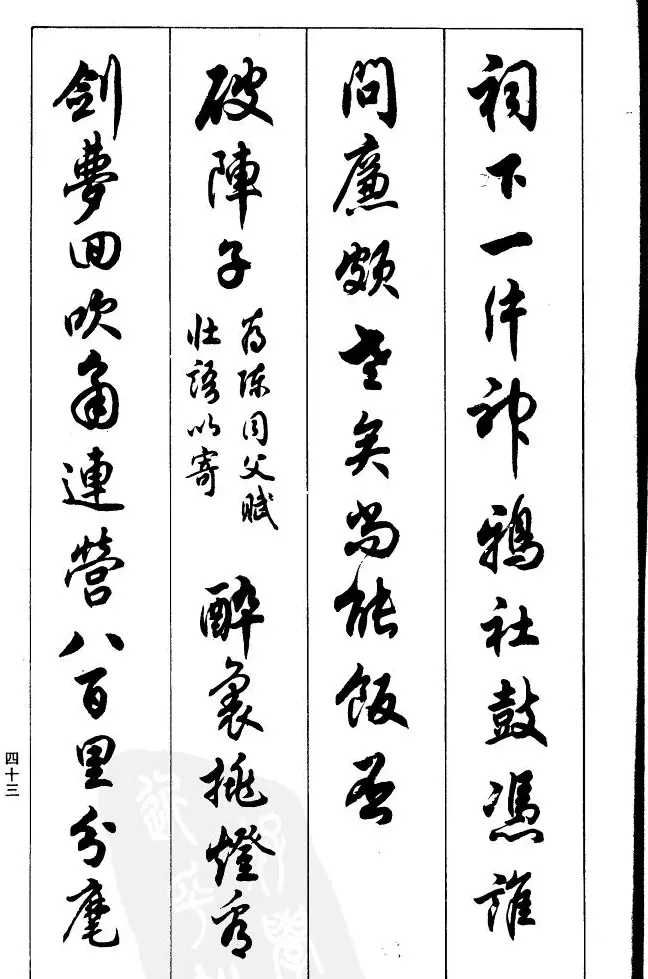 祠下一片神鴉社鼓馮誰
問廉頗老矣尚能飯否
破陣子
為陳同父賦
壯語以寄
醉裏挑燈看
劍夢回吹角連營八百里分麾
四十三